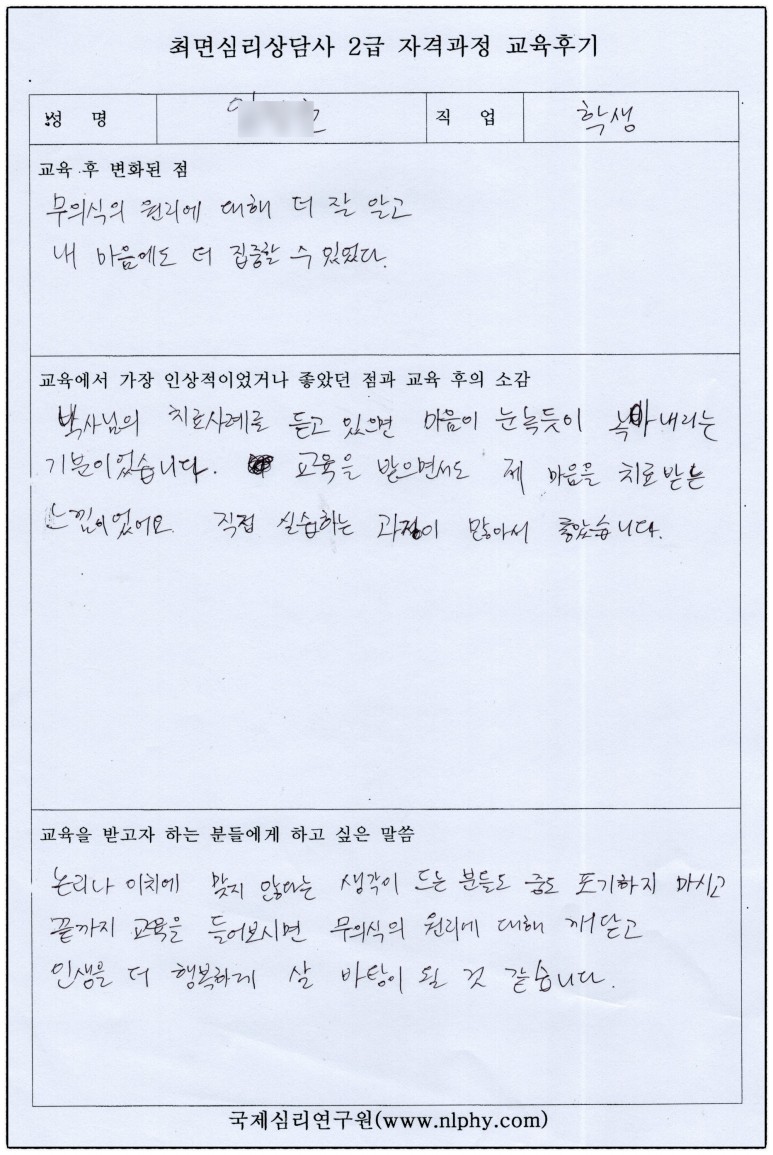 최면심리상담사 2급 자격과정 교육후기
성 명
직 업 학생
교육 후 변화된 점
무의식의 원리에 대해 더 잘 알고
내 마음에도 더 집중할 수 있었다.
교육에서 가장 인상적이었거나 좋았던 점과 교육 후의 소감
박사님의 치료사례를 듣고 있으면 마음이 눈녹듯이 녹아내리는
기분이었습니다. 교육을 받으면서도 제 마음을 치료받는
느낌이었어요. 직접 실습하는 과정이 많아서 좋았습니다.
교육을 받고자 하는 분들에게 하고 싶은 말씀
논리나 이치에 맞지 않다는 생각이 드는 분들도 중도 포기하지 마시고
끝까지 교육을 들어보시면 무의식의 원리에 대해 깨닫고
인생을 더 행복하게 살 바탕이 될 것 같습니다.
국제심리연구원(www.nlphy.com)